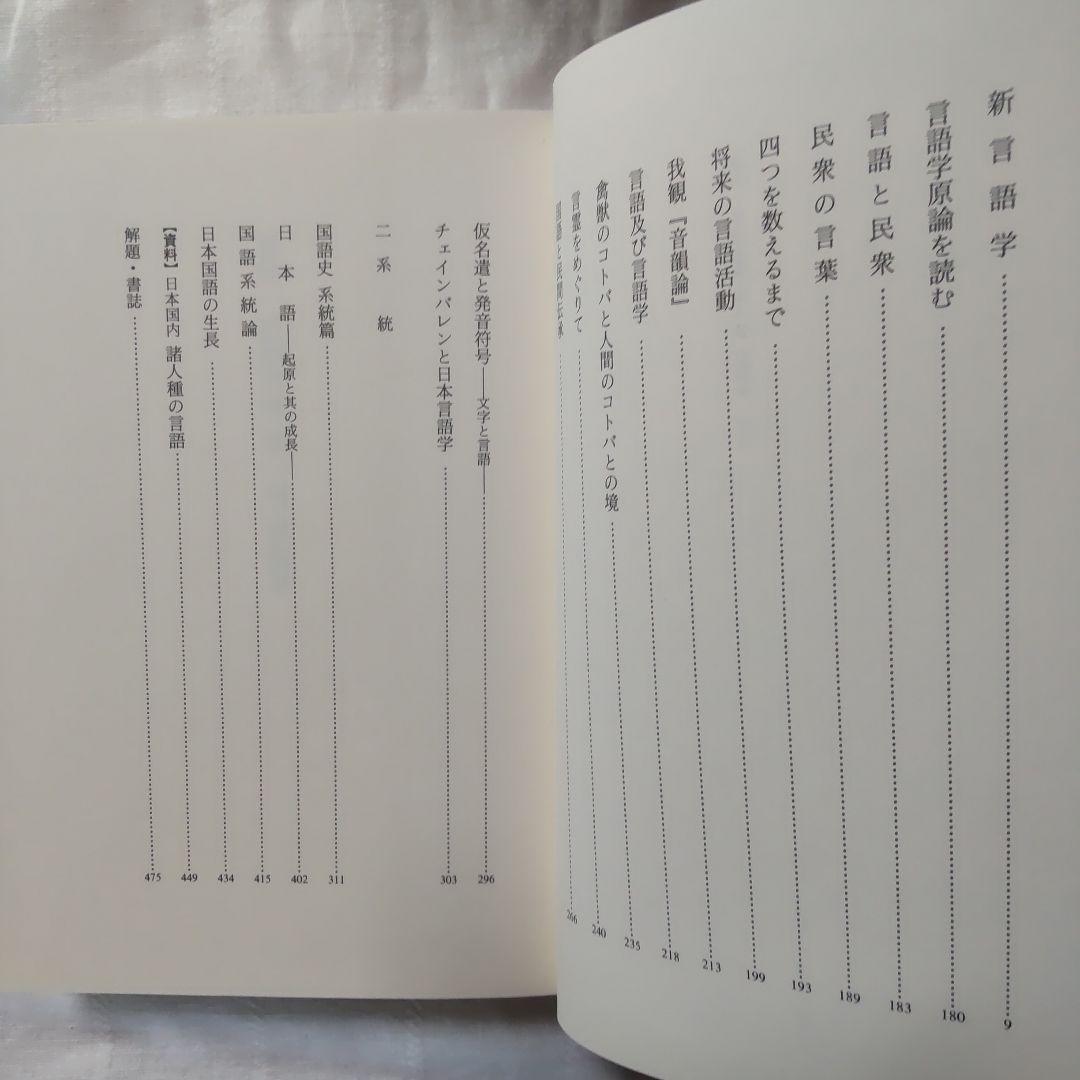 新言語学……9
言語学原論を読む……180
言語と民衆……183
民衆の言葉……189
四つを数えるまで……193
将来の言語活動……199
我観『音韻論』……213
言語及び言語学……218
禽獣のコトバと人間のコトバとの境……235
言霊をめぐりて……240
266
仮名遣と発音符号——文字と言語——……296
チェインバレンと日本言語学……303
二 系統
国語史 系統篇……311
日本語——起原と其の成長——……402
国語系統論……415
日本国語の生長……434
【資料】日本国内 諸人種の言語……449
解題・書誌……475